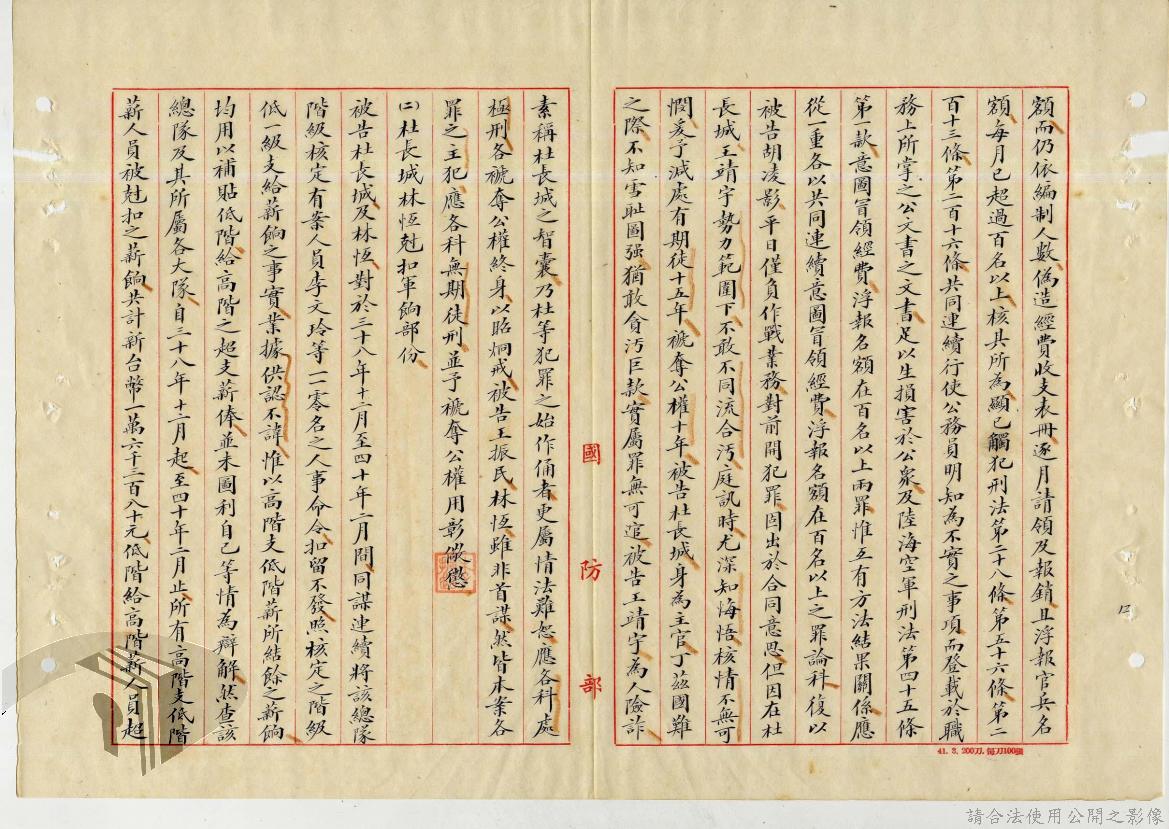 額而仍依編制人數偽造經費收支表冊逐月請領及報銷且浮報官兵名
額每月已超過百名以上核其所為顯已觸犯刑法第二十八條第五十六條第二
百十三條第二百十六條共同連續行使公務員明知為不實之事項而登載於職
務上所掌之公文書之文書足以生損害於公眾及陸海空軍刑法第四十五條
第一款意圖冒領經費浮報名額在百名以上兩罪惟互有方法結果關係應
從一重各以共同連續意圖冒領經費浮報名額在百名以上之罪論科復以
被告胡凌影平日僅負作戰業務對前開犯罪固出於合同意思但因在杜
長城王靖宇勢力範圍下不敢不同流合污庭訊時尤深知悔悟核情不無可
憫爰予減處有期徒十五年褫奪公權十年被告杜長城身為主官丁茲國難
之際不知雪耻圖强猶敢貪污巨款實屬罪無可逭被告王靖宇為人險詐
素稱杜長城之智囊乃杜等犯罪之始作俑者更屬情法難恕應各科處
極刑各褫奪公權終身以昭炯戒被告王振民林恆雖非首謀然皆本案各
罪之主犯應各科無期徒刑並予褫奪公權用彰儆懲
㈡杜長城林恆尅扣軍餉部份
被告杜長城及林恆對於三十八年十二月至四十年二月間同謀連續將該總隊
階級核定有案人員李文玲等一一零名之人事命令扣留不發照核定之階級
低一級支給薪餉之事實業據供認不諱惟以高階支低階薪所結餘之薪餉
均用以補貼低階給高階之超支薪俸並未圖利自己等情為辯解然查該
總隊及其所屬各大隊自三十八年十二月起至四十年二月止所有高階支低階
薪人員被尅扣之薪餉共計新台幣一萬六千三百八十元低階給高階薪人員超
國防部
41. 3. 200刀. 每刀100張
請合法使用公開之影像